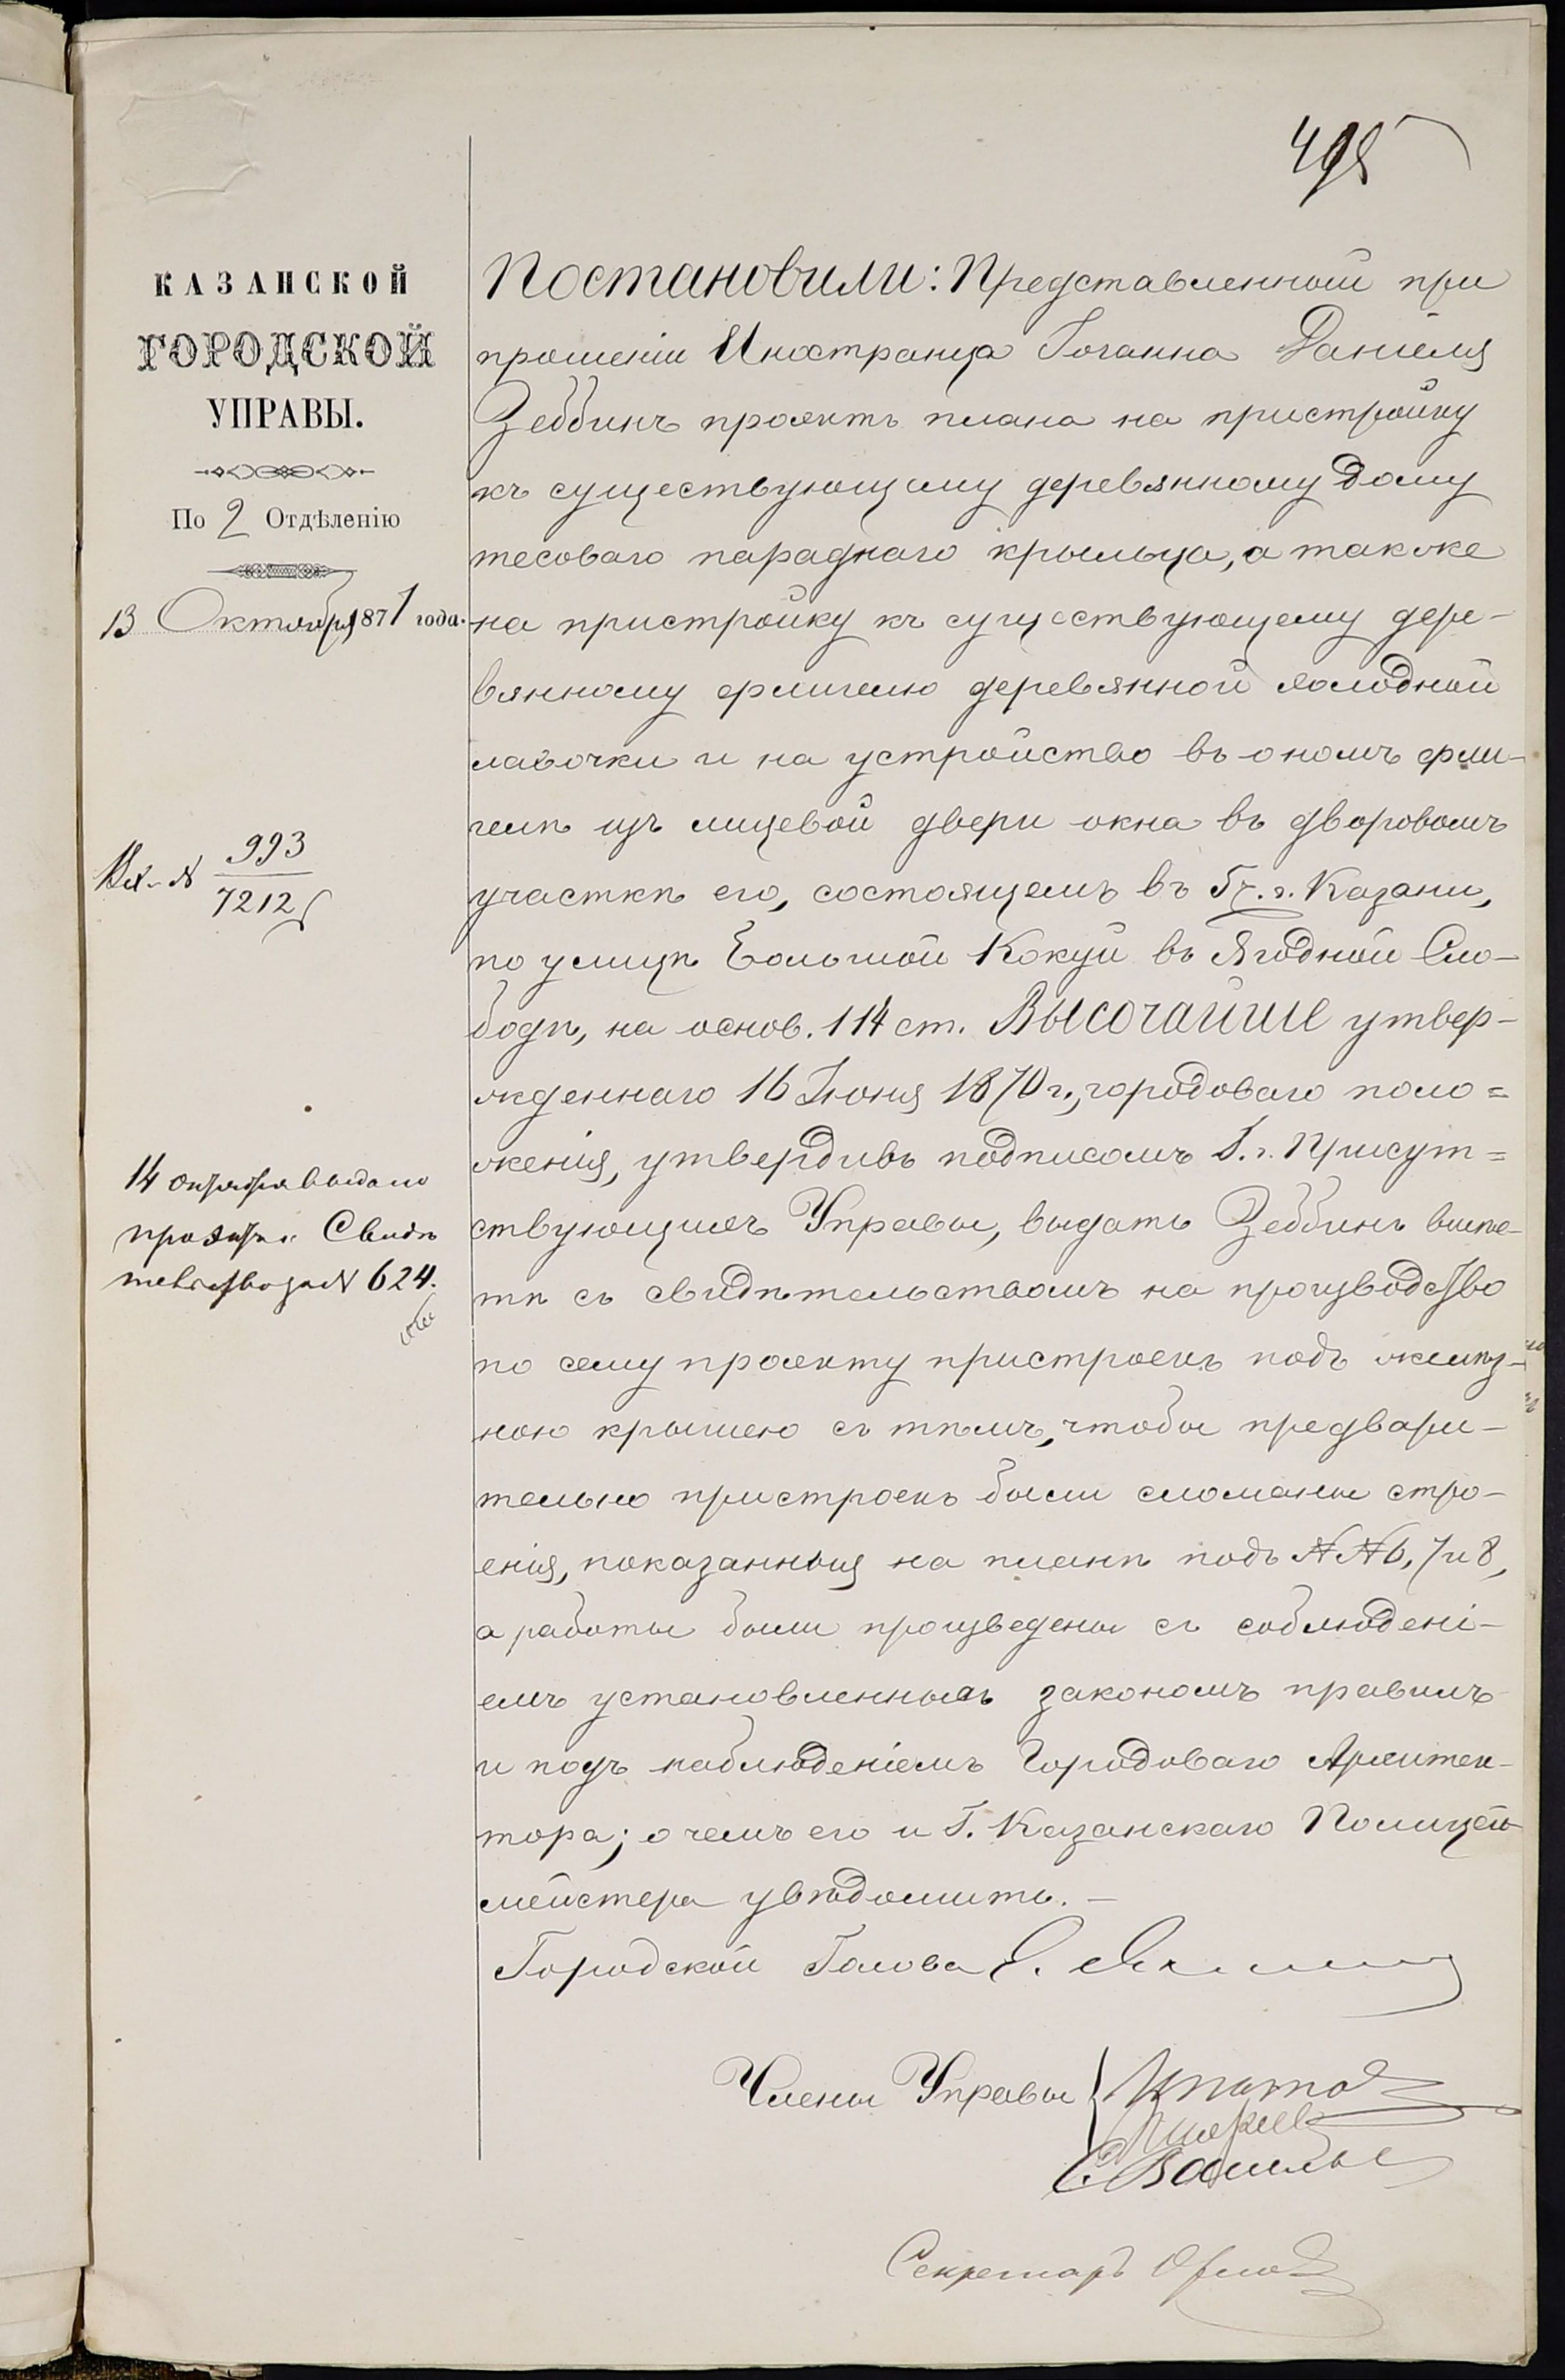 КАЗАНСКОЙ
ГОРОДСКОЙ
УПРАВЫ.
По 2 Отдѣленію
13 Октября 1871 года.
Вх. № 993
7212
14 октября выдано
проэктъ Свидѣ
тельство за № 624.
Постановили: Представленный при
прошеніи Иностранца Іоганна Даніеля
Зеббинъ проэктъ плана на пристройку
къ существующему деревянному дому
тесоваго параднаго крыльца, а также
на пристройку къ существующему дере-
вянному флигелю деревянной холодной
лавочки и на устройство въ ономъ фли-
гелѣ изъ лицевой двери окна въ дворовомъ
участкѣ его, состоящемъ въ 5 ч. г. Казани,
по улицѣ Большой Кокуй въ Ягодной Сло-
бодѣ, на основ. 114 ст. Высочайше утвер-
жденнаго 16 Іюня 1870 г., городоваго поло=
женія, утвердивъ подписомъ Г. г. Присут=
ствующихъ Управы, выдать Зеббинъ вмѣс-
тѣ съ свидѣтельствомъ на производство
по сему проэкту пристроекъ подъ желѣз-
ною крышею съ тѣмъ, чтобы предвари-
тельно пристроекъ были сломаны стро-
енія, показанныя на планѣ подъ №№ 6, 7 и 8,
а работы были произведены съ соблюдені-
емъ установленныхъ закономъ правилъ
и подъ наблюденіемъ Городоваго Архитек-
тора; о чемъ его и Г. Казанскаго Полицей-
мейстера увѣдомить. —
Городской Голова Е.
Члены Управы
С. Васильев
Секретарь Орлов